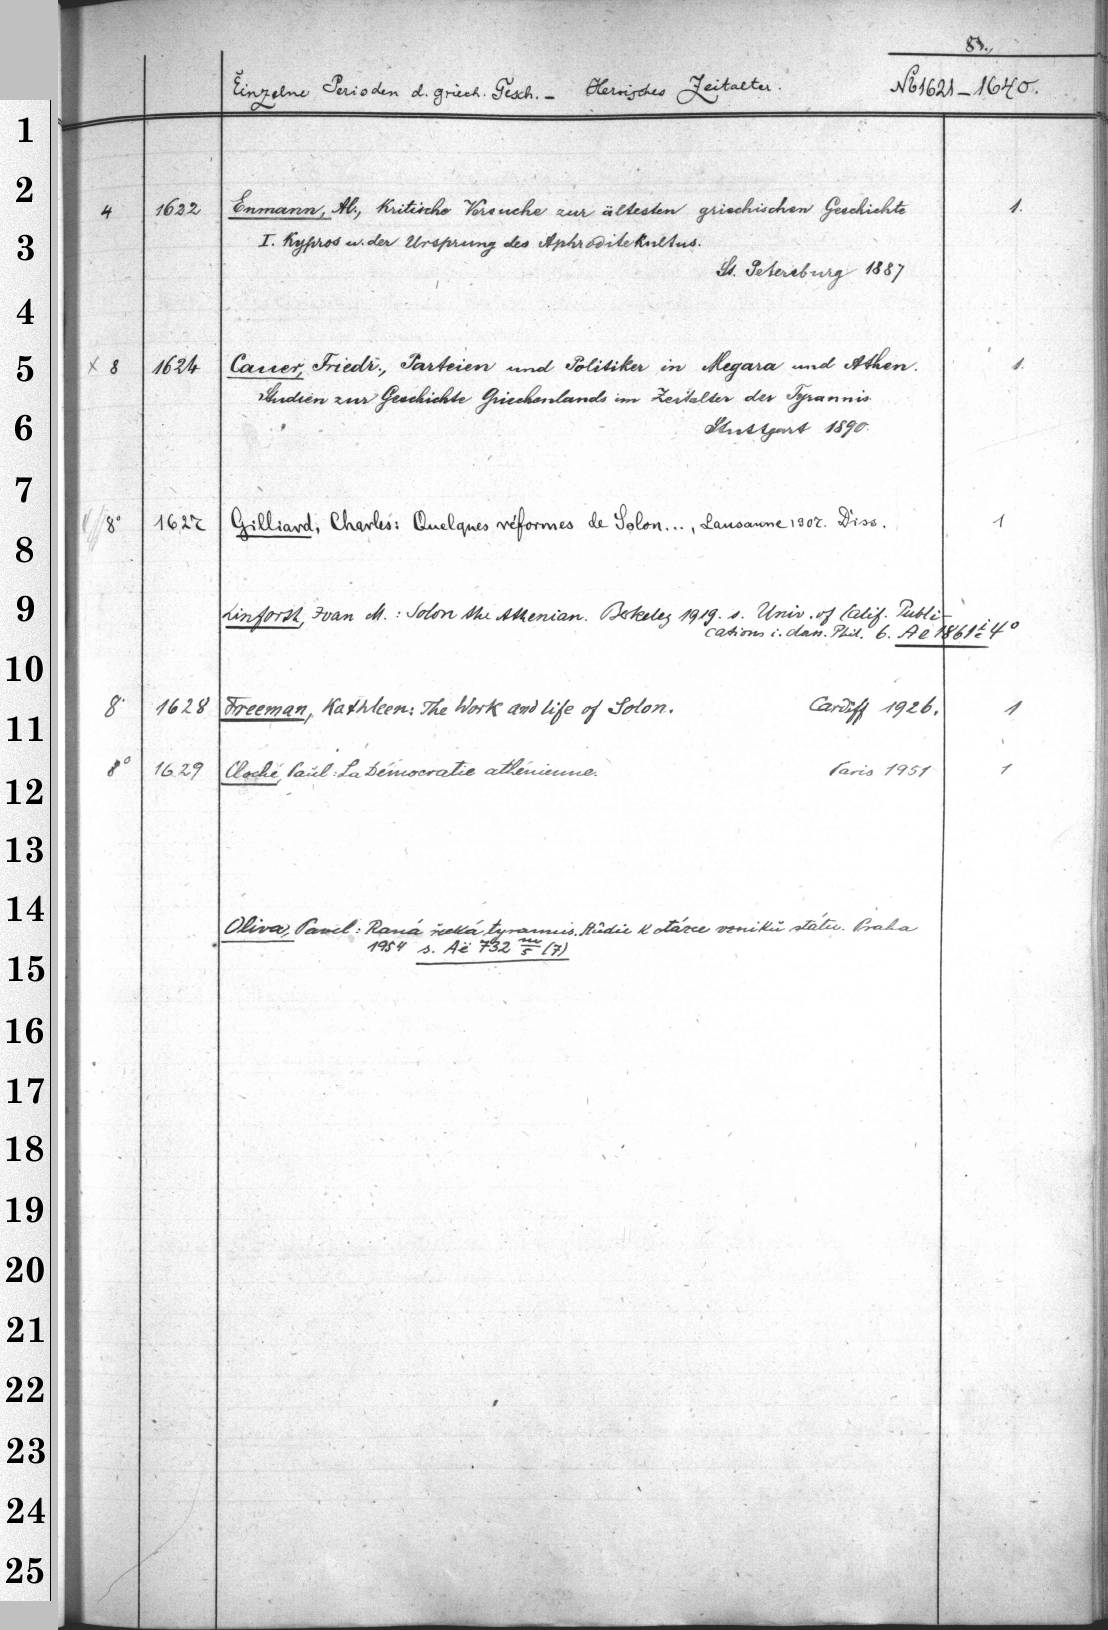 83.
Einzelne Perioden d. griech. Gesch. – Heroisches Zeitalter. № 1621–1640.
1
2
4 1622 Enmann, Al., Kritische Versuche zur ältesten griechischen Geschichte 1.
3
I. Kypros u. der Ursprung des Aphroditekultus.
St. Petersburg 1887
4
5
x 8 1624 Cauer, Friedr., Parteien und Politiker in Megara und Athen. 1.
Studien zur Geschichte Griechenlands im Zeitalter der Tyrannis
6
Stuttgart 1890.
7
8° 1627 Gilliard, Charles: Quelques réformes de Solon..., Lausanne 1907. Diss. 1
8
9
Linforth, Ivan M.: Solon the Athenian. Berkeley 1919. s. Univ. of Calif. Publi-
cations i. clas. Phil. 6. Ae 1861 4°
10
8° 1628 Freeman, Kathleen: The Work and life of Solon. Cardiff 1926. 1
11
8° 1629 Cloché, Paul: La Démocratie athénienne. Paris 1951 1
12
13
14
Oliva, Pavel: Raná řecká tyrannis. Studie k otázce vzniku státu. Praha
1954 s. Aë 732 m/5 (7)
15
16
17
18
19
20
21
22
23
24
25